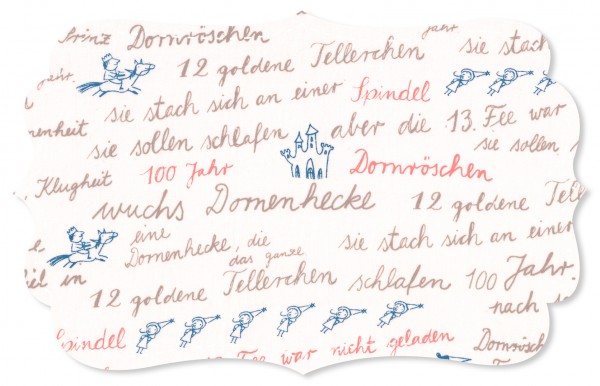 Prinz Dornröschen
12 goldene Tellerchen sie stach
jahr.
sie stach sich an einer Spindel
sie sollen schlafen aber die 13. Fee war
sie sollen
Klugheit 100 Jahr Dornröschen
wuchs Dornenhecke 12 goldene Teller
eine
Dornenhecke, die
das ganze
sie stach sich an einer
12 goldene Tellerchen schlafen 100 Jahr.
nach
Spindel
Fee war nicht geladen
Dornrösch